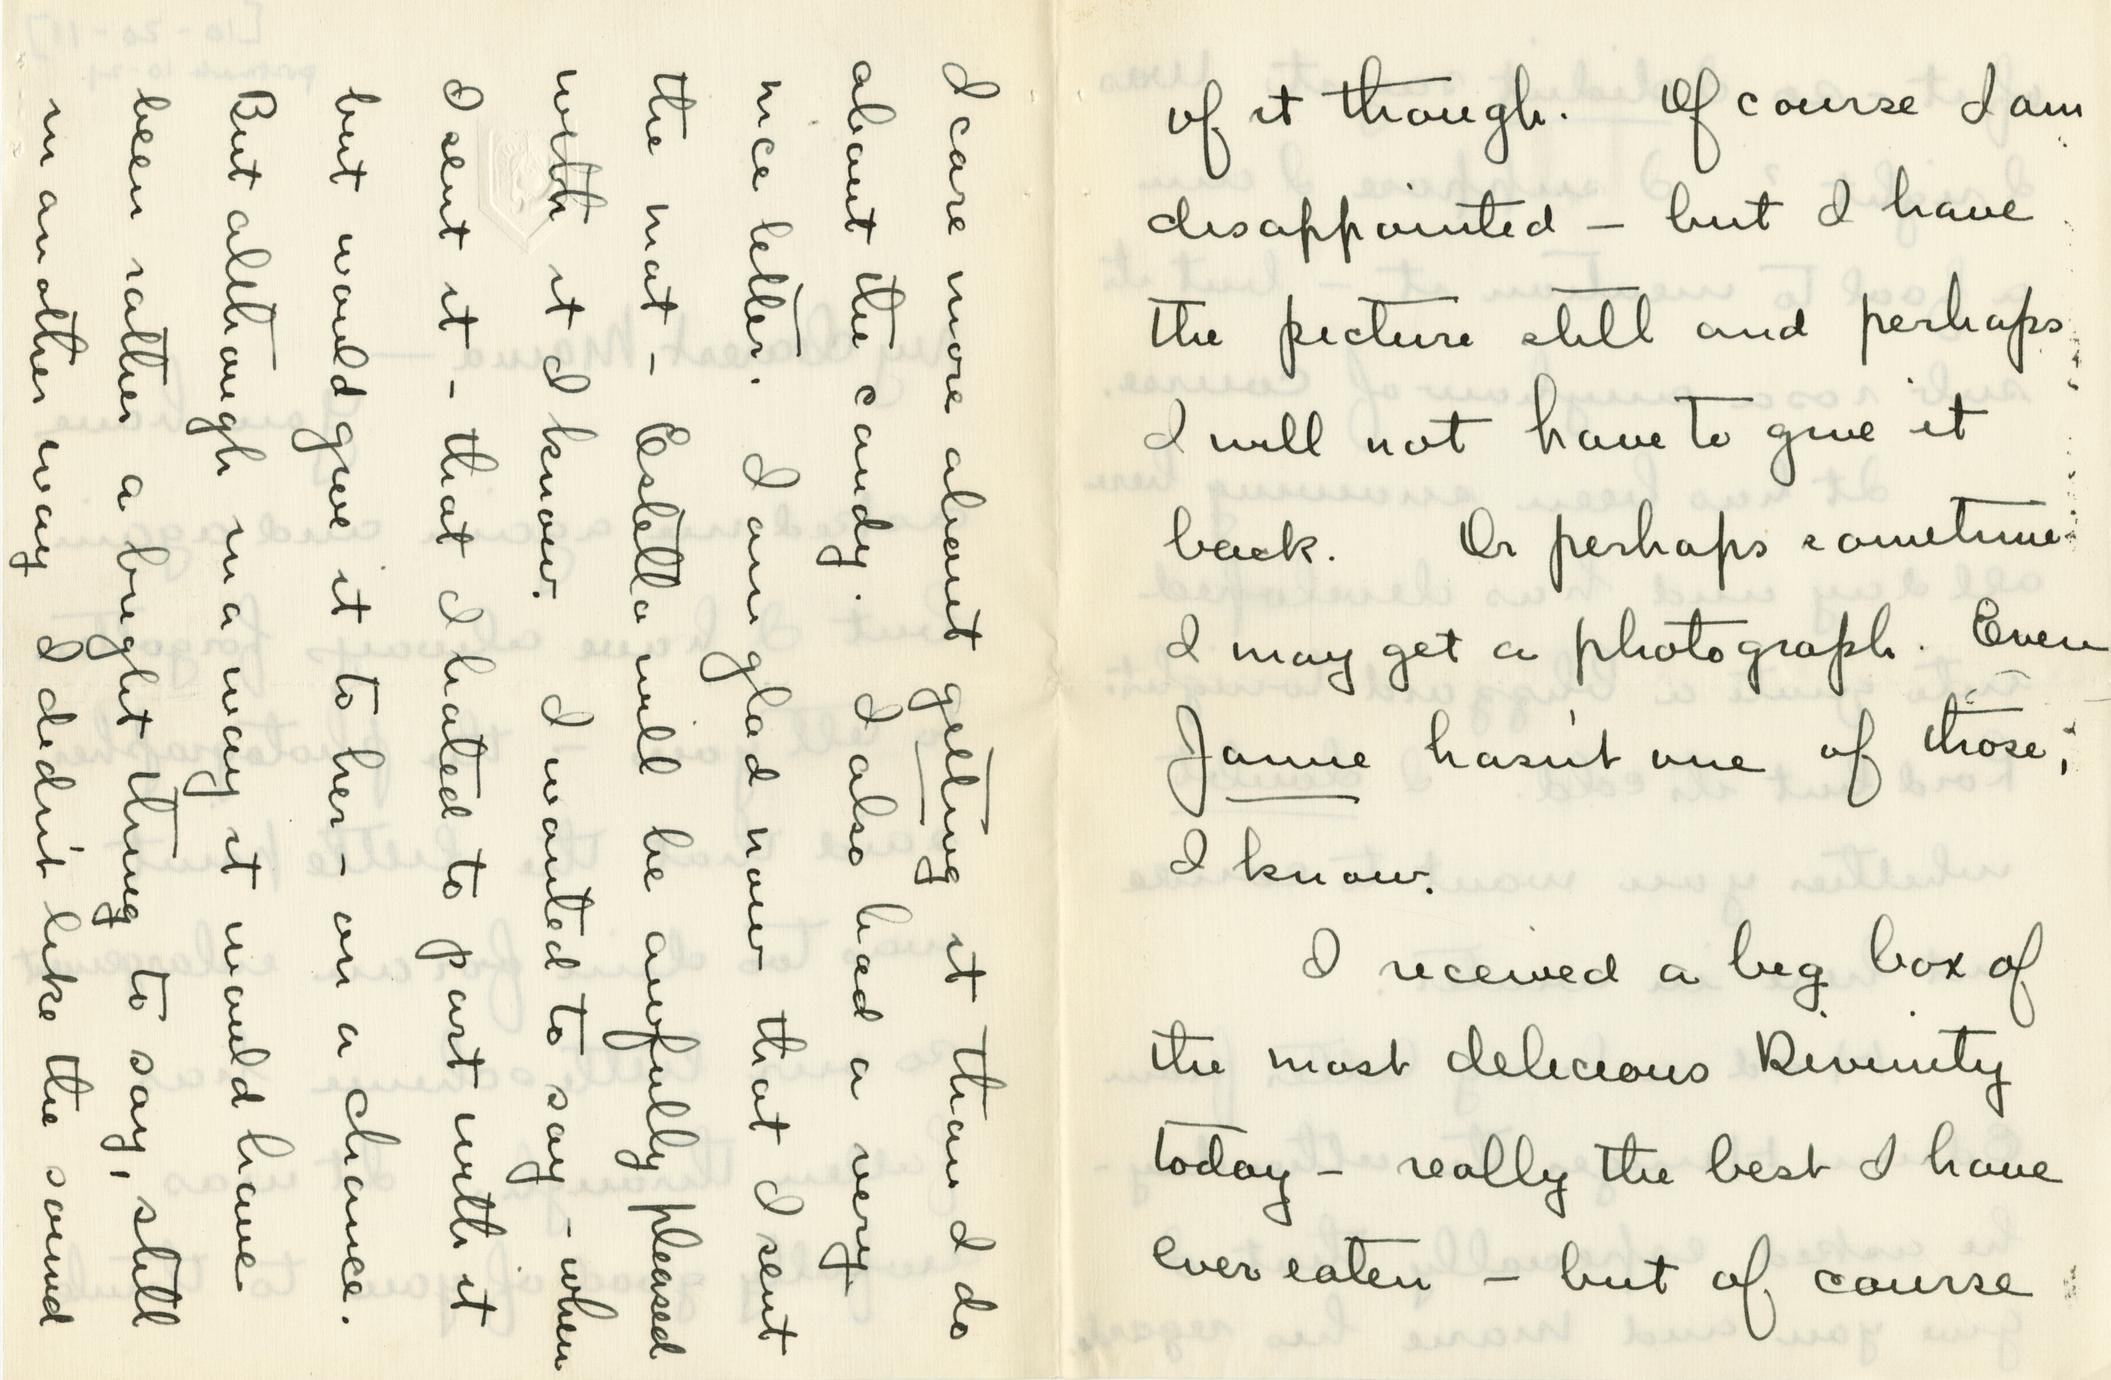 of it though. Of course I am
disappointed – but I have
the picture still and perhaps
I will not have to give it
back. Or perhaps sometime
I may get a photograph. Even
Janne hasn't one of those,
I know.
I received a big box of
the most delicious Divinity
today – really the best I have
ever eaten – but of course
I care more about getting it than I do
about the candy. I also had a very
nice letter. I am glad now that I sent
the mat – Estella will be awfully pleased
with it I know. I wanted to say – when
I sent it – that I hated to part with it
but would give it to her – on a chance.
But although in a way it would have
been rather a bright thing to say, still
in another way I didn't like the sound